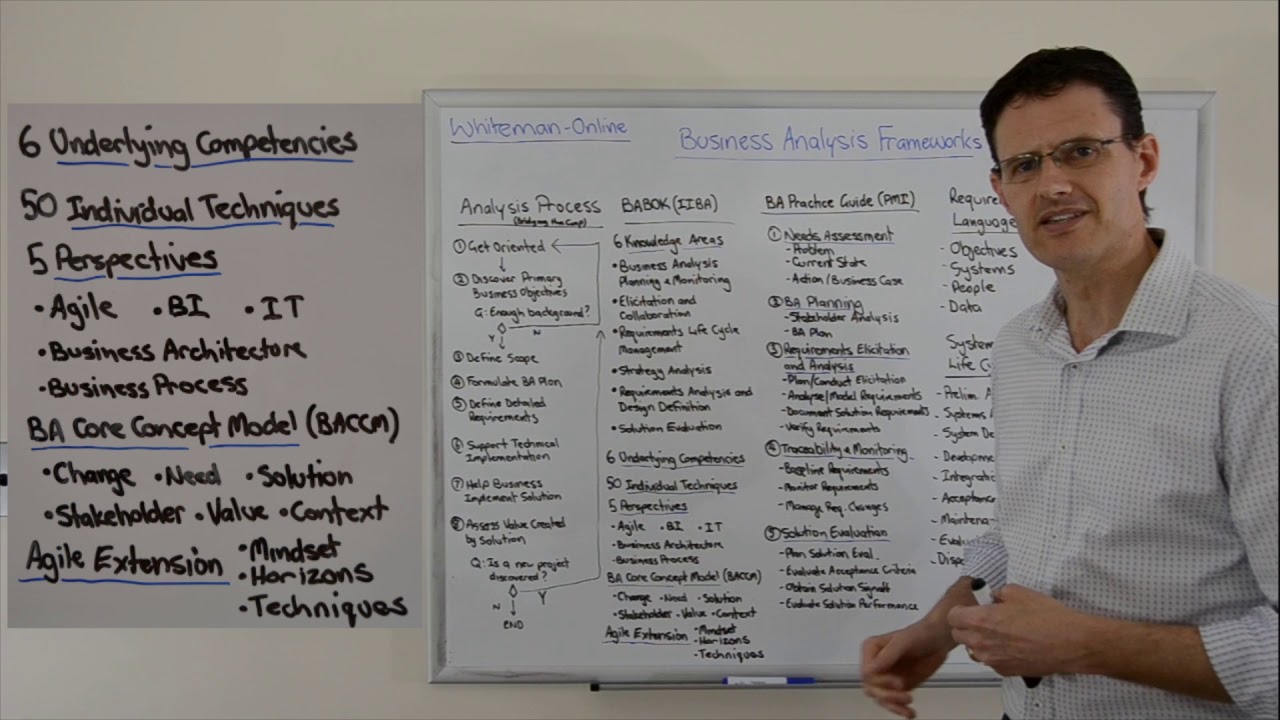 6 Underlying Competencies
50 Individual Techniques
5 Perspectives
• Agile • BI • IT
• Business Architecture
• Business Process
BA Core Concept Model (BACCM)
• Change • Need • Solution
• Stakeholder • Value • Context
Agile Extension • Mindset
• Horizons
• Techniques
Whiteman-Online
Business Analysis Frameworks
Analysis Process
(Bridging the Gap)
① Get Oriented
② Discover Primary
Business Objectives
Q: Enough background?
Y N
③ Define Scope
④ Formulate BA Plan
⑤ Define Detailed
Requirements
⑥ Support Technical
Implementation
⑦ Help Business
Implement Solution
⑧ Assess Value Created
by Solution
Q: Is a new project
discovered?
N Y
END
BABOK (IIBA)
6 Knowledge Areas
• Business Analysis
Planning & Monitoring
• Elicitation and
Collaboration
• Requirements Life Cycle
Management
• Strategy Analysis
• Requirements Analysis and
Design Definition
• Solution Evaluation
6 Underlying Competencies
50 Individual Techniques
5 Perspectives
• Agile • BI • IT
• Business Architecture
• Business Process
BA Core Concept Model (BACCM)
• Change • Need • Solution
• Stakeholder • Value • Context
Agile Extension • Mindset
• Horizons
• Techniques
BA Practice Guide (PMI)
① Needs Assessment
- Problem
- Current State
- Action/Business Case
② BA Planning
- Stakeholder Analysis
- BA Plan
③ Requirements Elicitation
and Analysis
- Plan/Conduct Elicitation
- Analyse/Model Requirements
- Document Solution Requirements
- Verify Requirements
④ Traceability & Monitoring
- Baseline Requirements
- Monitor Requirements
- Manage Req. Changes
⑤ Solution Evaluation
- Plan Solution Eval.
- Evaluate Acceptance Criteria
- Obtain Solution Signoff
- Evaluate Solution Performance
Require
Language
- Objectives
- Systems
- People
- Data
System
Life Cy
- Prelim. A
- Systems A
- System De
- Developme
- Integratio
- Acceptance
- Maintena
- Evalua
- Dispo